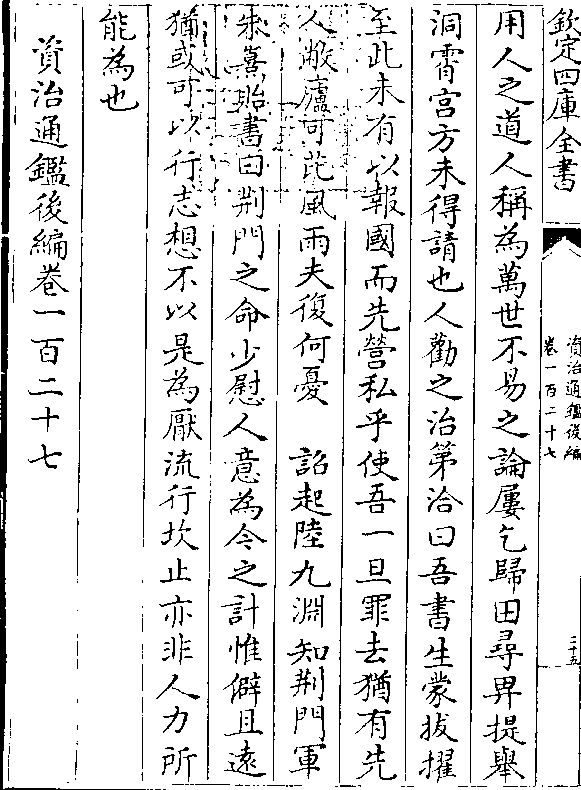 欽定四庫全書
資治通鑑後編
卷一百二十七
二十五
用人之道人稱為萬世不易之論屢乞歸田尋畀提舉
洞霄宫方未得請也人勸之治第洽曰吾書生蒙拔擢
至此未有以報國而先營私乎使吾一旦罪去猶有先
人敝廬可芘風雨夫復何憂　詔起陸九淵知荆門軍
朱熹貽書曰荆門之命少慰人意為今之計惟僻且遠
猶或可以行志想不以是為厭流行坎止亦非人力所
能為也
資治通鑑後編卷一百二十七